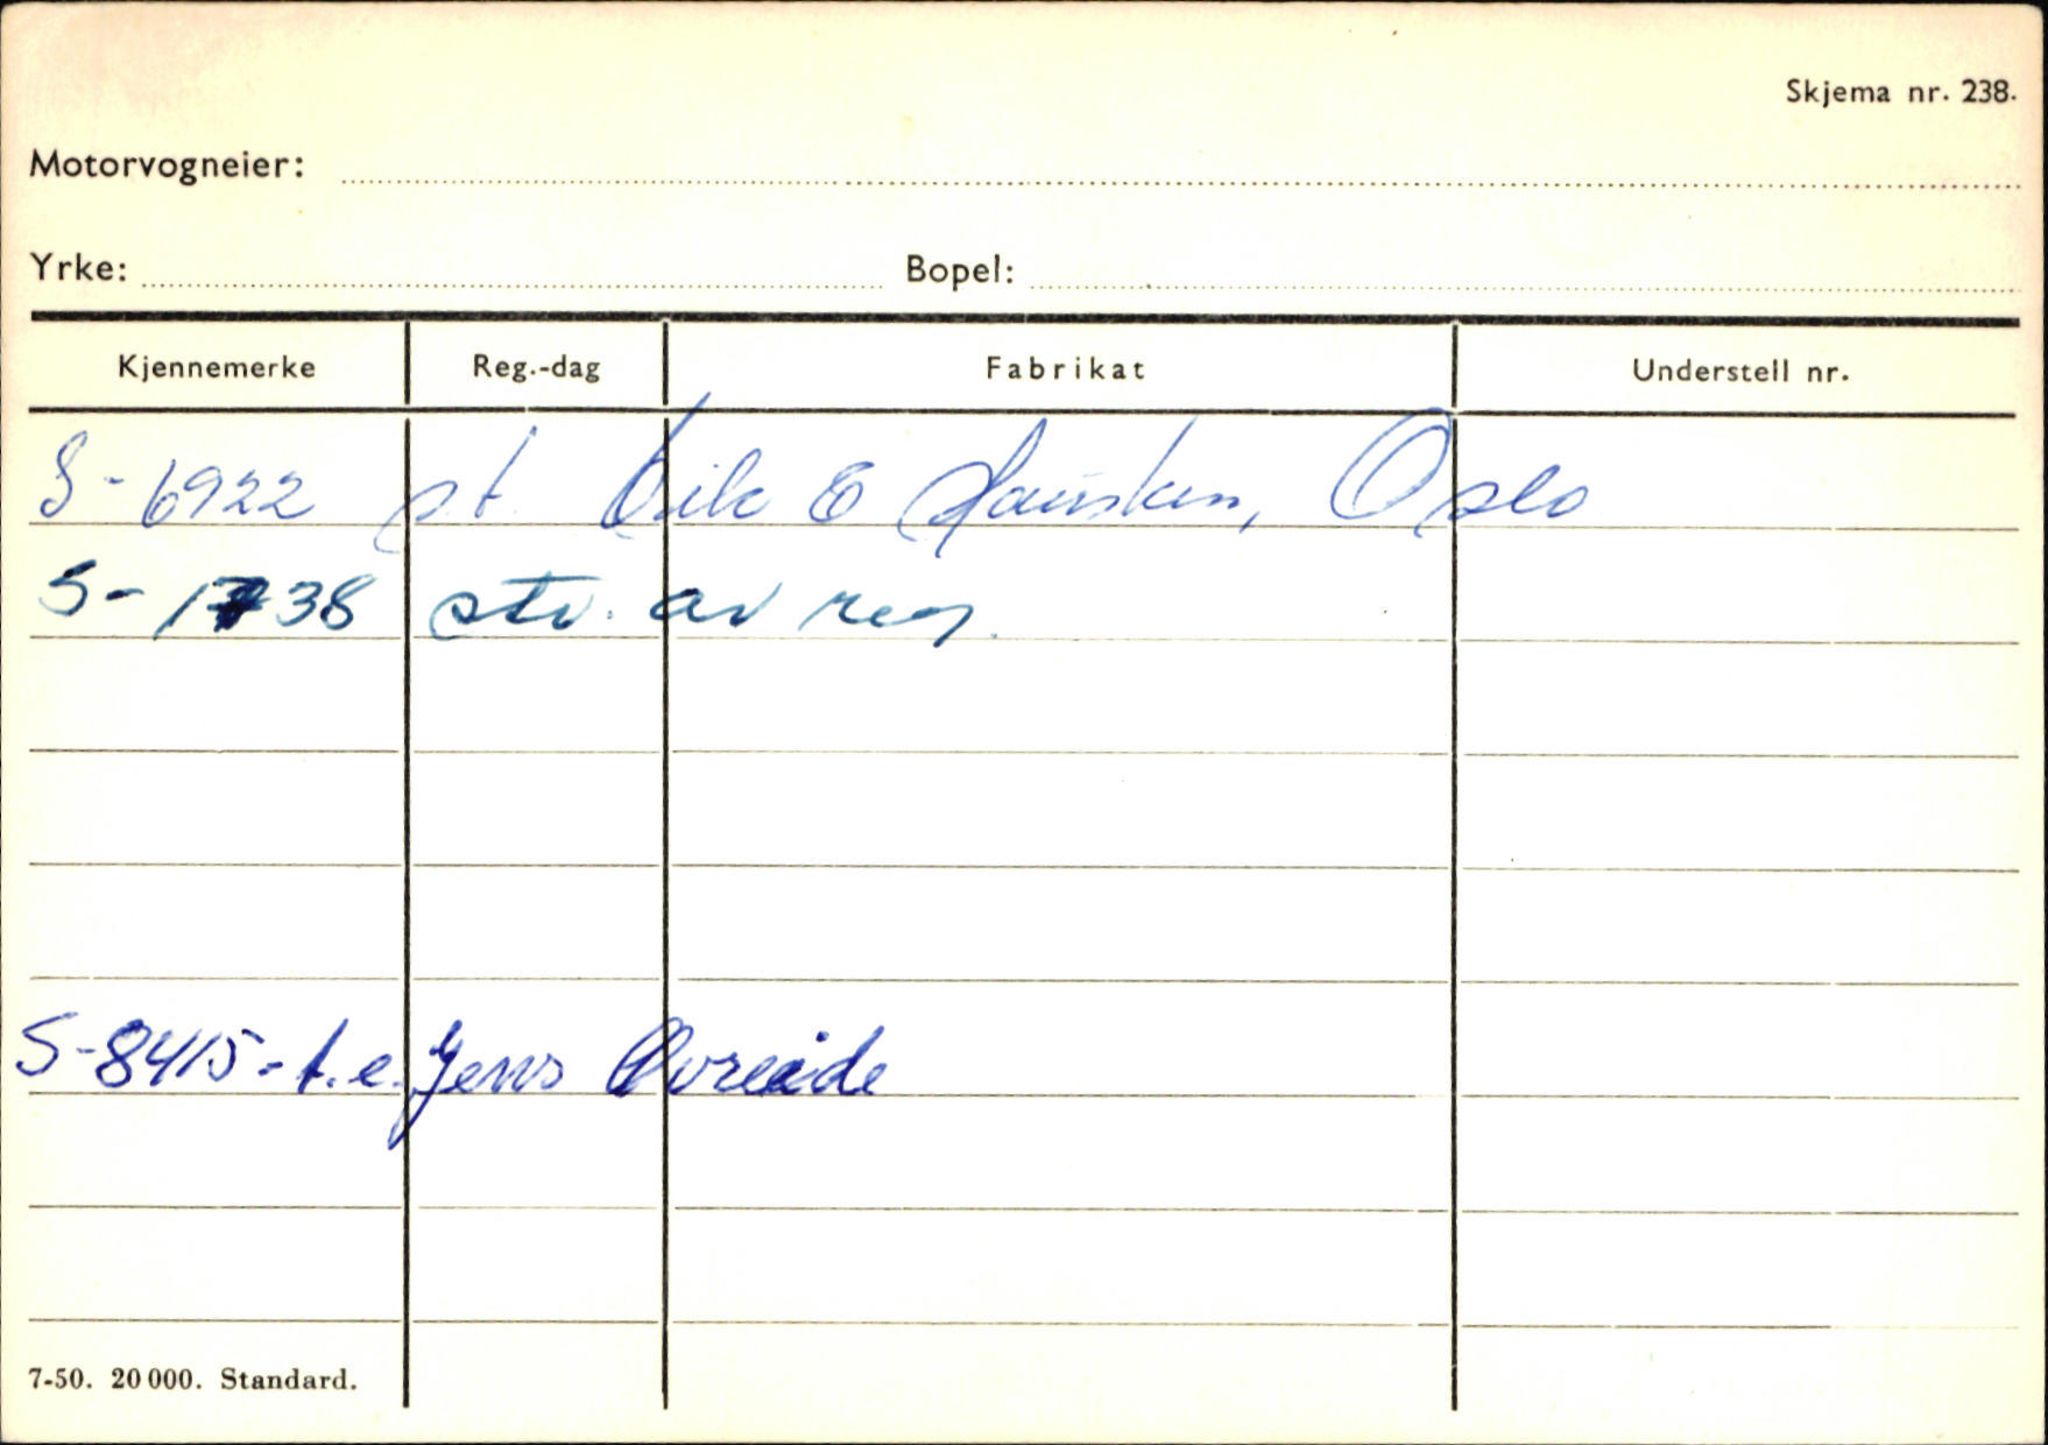 Skjema nr. 238.
Motorvogneier:
Yrke: Bopel:
Kjennemerke Reg.-dag Fabrikat Understell nr.
S-6922 st. E Hausken, Oslo
S-1738 stv. av reg.
S-8415-t.e. Jens Øvreeide
7-50. 20000. Standard.